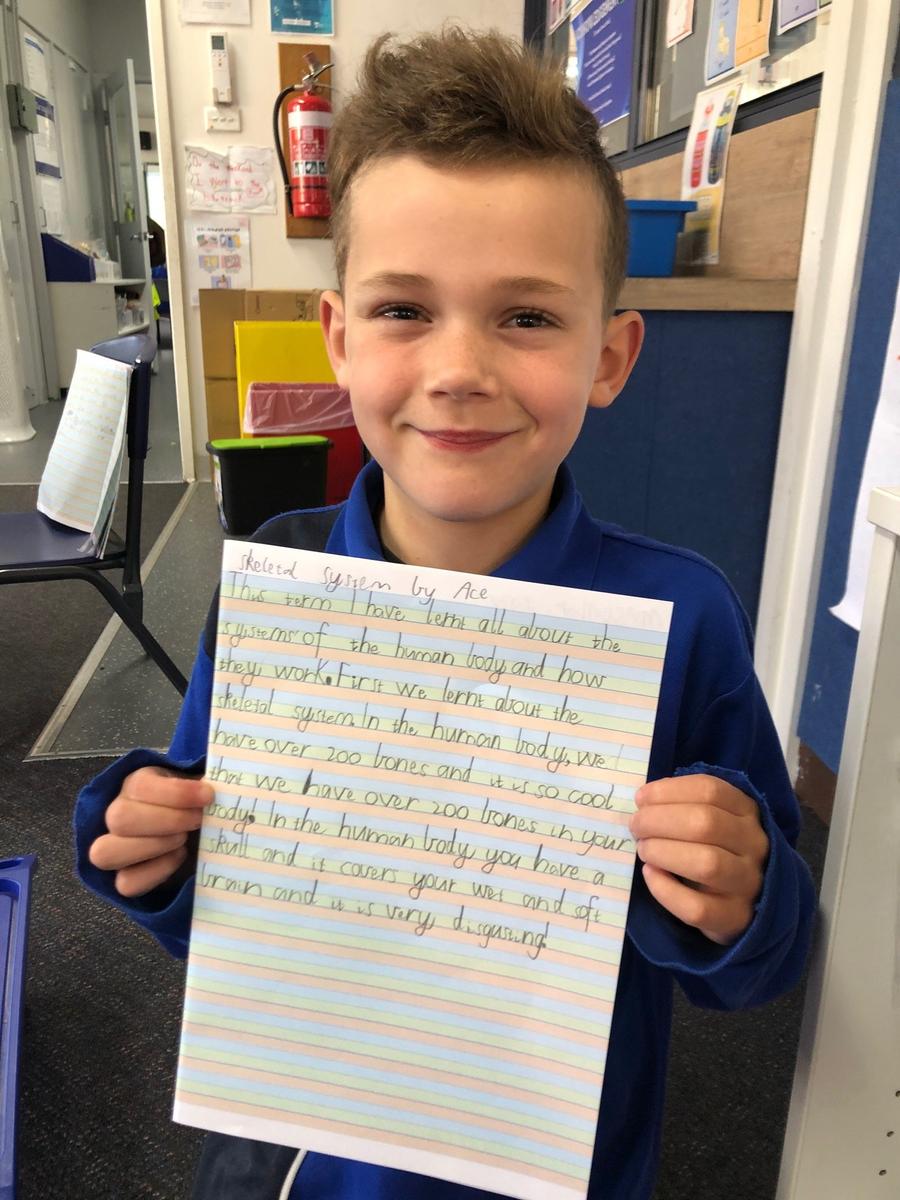 skeletal system by Ace
This term I have lernt all about the
systems of the human body and how
they work. First we lernt about the
skeletal system. In the human body, we
have over 200 bones and it is so cool
that we have over 200 bones in your
body. In the human body you have a
skull and it covers your wet and soft
brain and it is very disgusting!